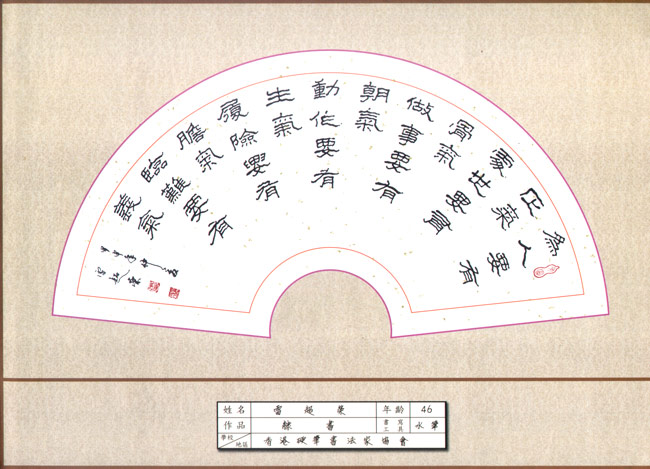 為人要有
正氣
處世要
骨氣
做事要有
朝氣
動作要有
生氣
履險要有
膽氣
臨難要有
義氣
雷超榮
姓名 雷超榮 年齡 46
作品 隸書 書寫工具 水筆
學校/地區 香港硬筆書法家協會